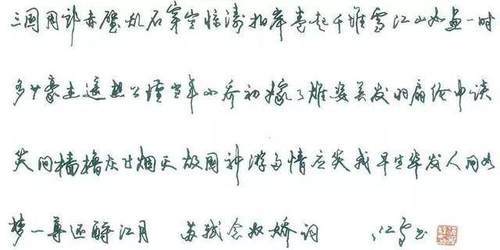 三国周郎赤壁乱石穿空惊涛拍岸卷起千堆雪江山如画一时
多少豪杰遥想公瑾当年小乔初嫁了雄姿英发羽扇纶巾谈
笑间樯橹灰飞烟灭故国神游多情应笑我早生华发人间如
梦一尊还酹江月 苏轼念奴娇词